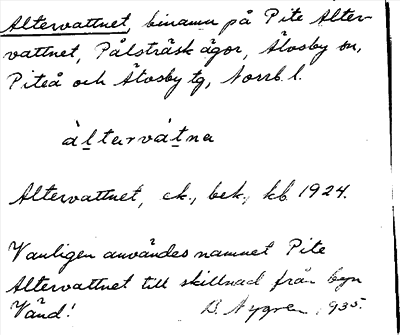 Altervattnet, binamn på Pite Alter-
vattnet, Pålsträsk ägor, Älvsby sn,
Piteå och Älvsby tg, Norrb. l.
àltərvátnə
Altervattnet, ek., bek., kb 1924.
Vanligen användes namnet Pite
Altervattnet till skillnad från byn
Vänd! B. Nygren, 1935.